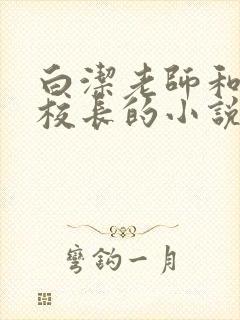 白潔老師和
校長的小說
彎鈎一月